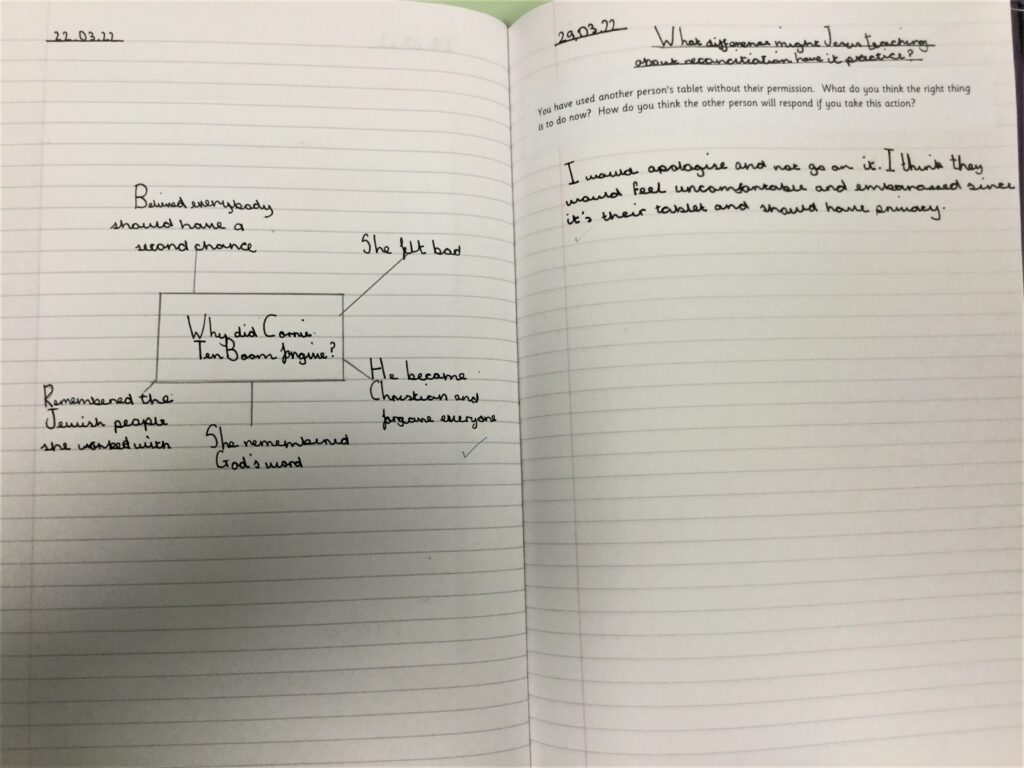 22.03.22
Believed everybody
should have a
second chance
She felt bad
Why did Corrie
Ten Boom forgive?
He became
Christian and
forgave everyone
Remembered the
Jewish people
she worked with
She remembered
God's word
29.03.22
What difference might Jesus teaching
about reconciliation have it practice?
You have used another person's tablet without their permission. What do you think the right thing
is to do now? How do you think the other person will respond if you take this action?
I would apologise and not go on it. I think they
would feel uncomfortable and embarrassed since
it's their tablet and should have privacy.